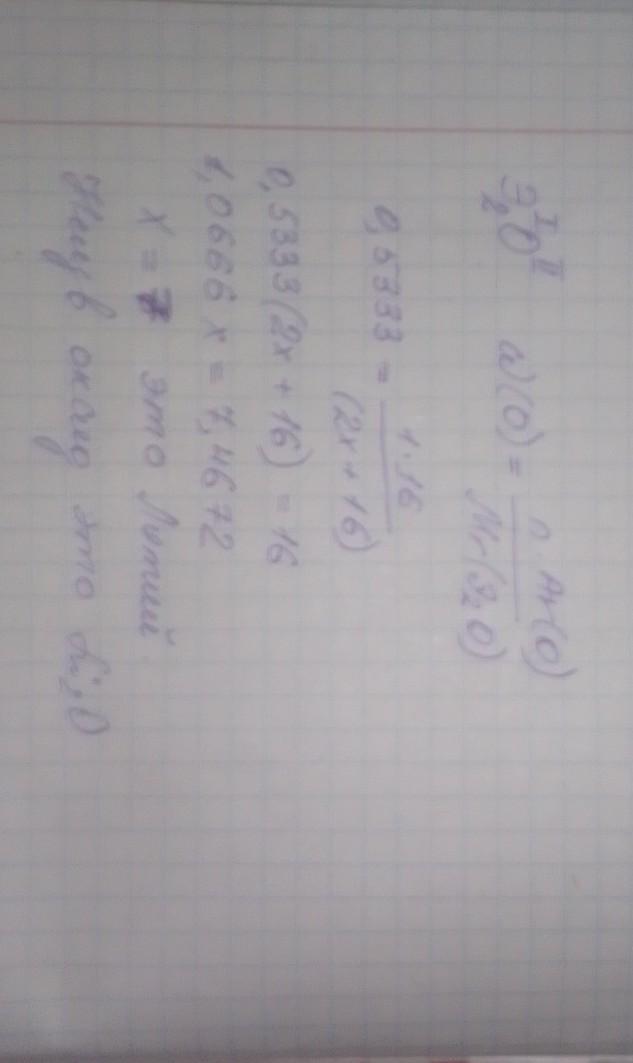 Э₂ᴵOᴵᴵ W(O) = n · Ar(O) / Mr(Э₂O)
0,5333 = 1·16 / (2x + 16)
0,5333(2x + 16) = 16
1,0666 x = 7,4672
x = 7 это Литий
оксид это Li₂O